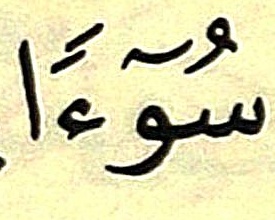 سُوٓءًا